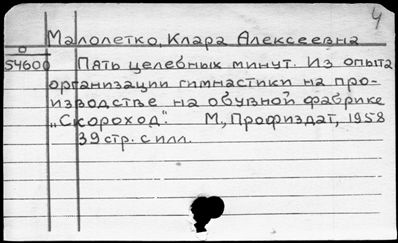 4
Малолетко, Клара Алексеевна
О
54600 Пять целебных минут. Из опыта
организации гимнастики на про-
изводстве на обувной фабрике
„Скороход". М., Профиздат, 1958
39 стр. с илл.